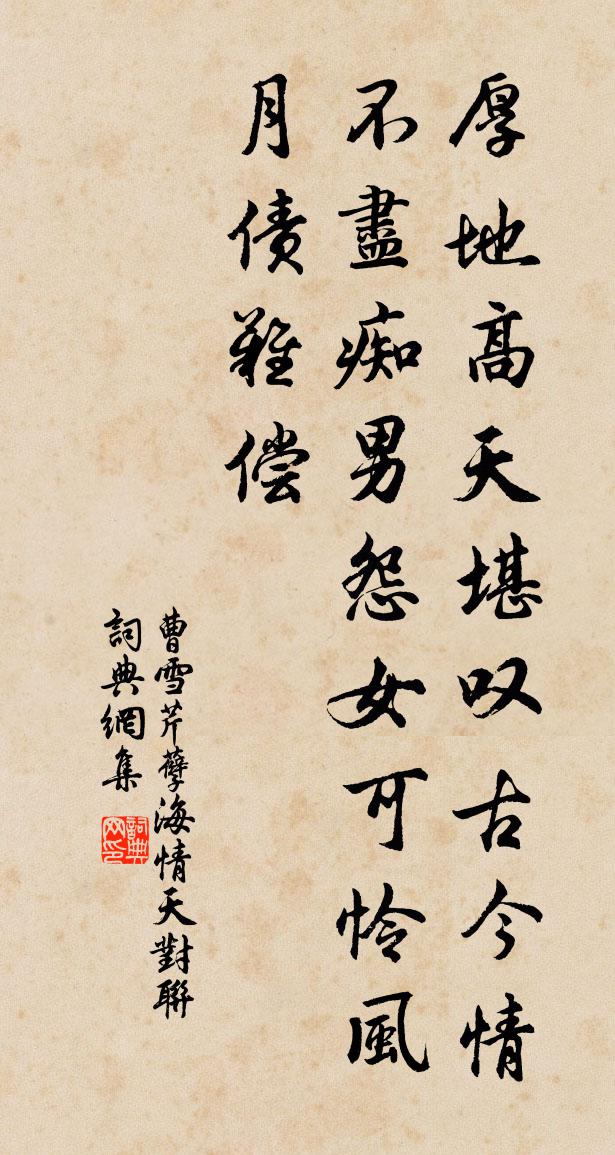 厚地高天堪叹古今情
不盡痴男怨女可怜風
月债難偿
曹雪芹孽海情天對聯
詞典網集
詞典網印